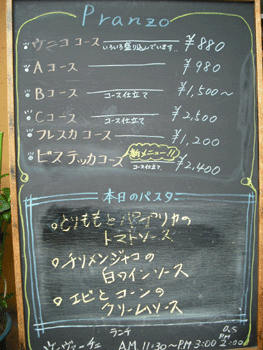 Pranzo
ウミココース いろいろ盛り込んでいます.. ¥880
Aコース ¥980
Bコース コース仕立て ¥1,500〜
Cコース コース仕立て ¥2,500
フレスカコース ¥1,200
ビステッカコース 新メニュー!! コース仕立て ¥2,400
本日のパスタ
とりももとパプリカの
トマトソース
チリメンジャコの
白ワインソース
エビとコーンの
クリームソース
ランチ O.S
AM 11:30〜PM 3:00 PM 2:00